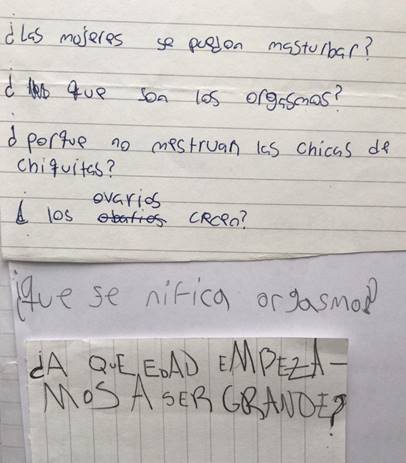 ¿Las mojeres se pueden masturbar?
¿ que son los orgasmos?
¿ porque no mestruan las chicas de
chiquitas?
ovarios
¿ los obatios crcen?
¿que se nifica orgasmo?
¿A QUE EDAD EMPEZA-
MOS A SER GRANDE?